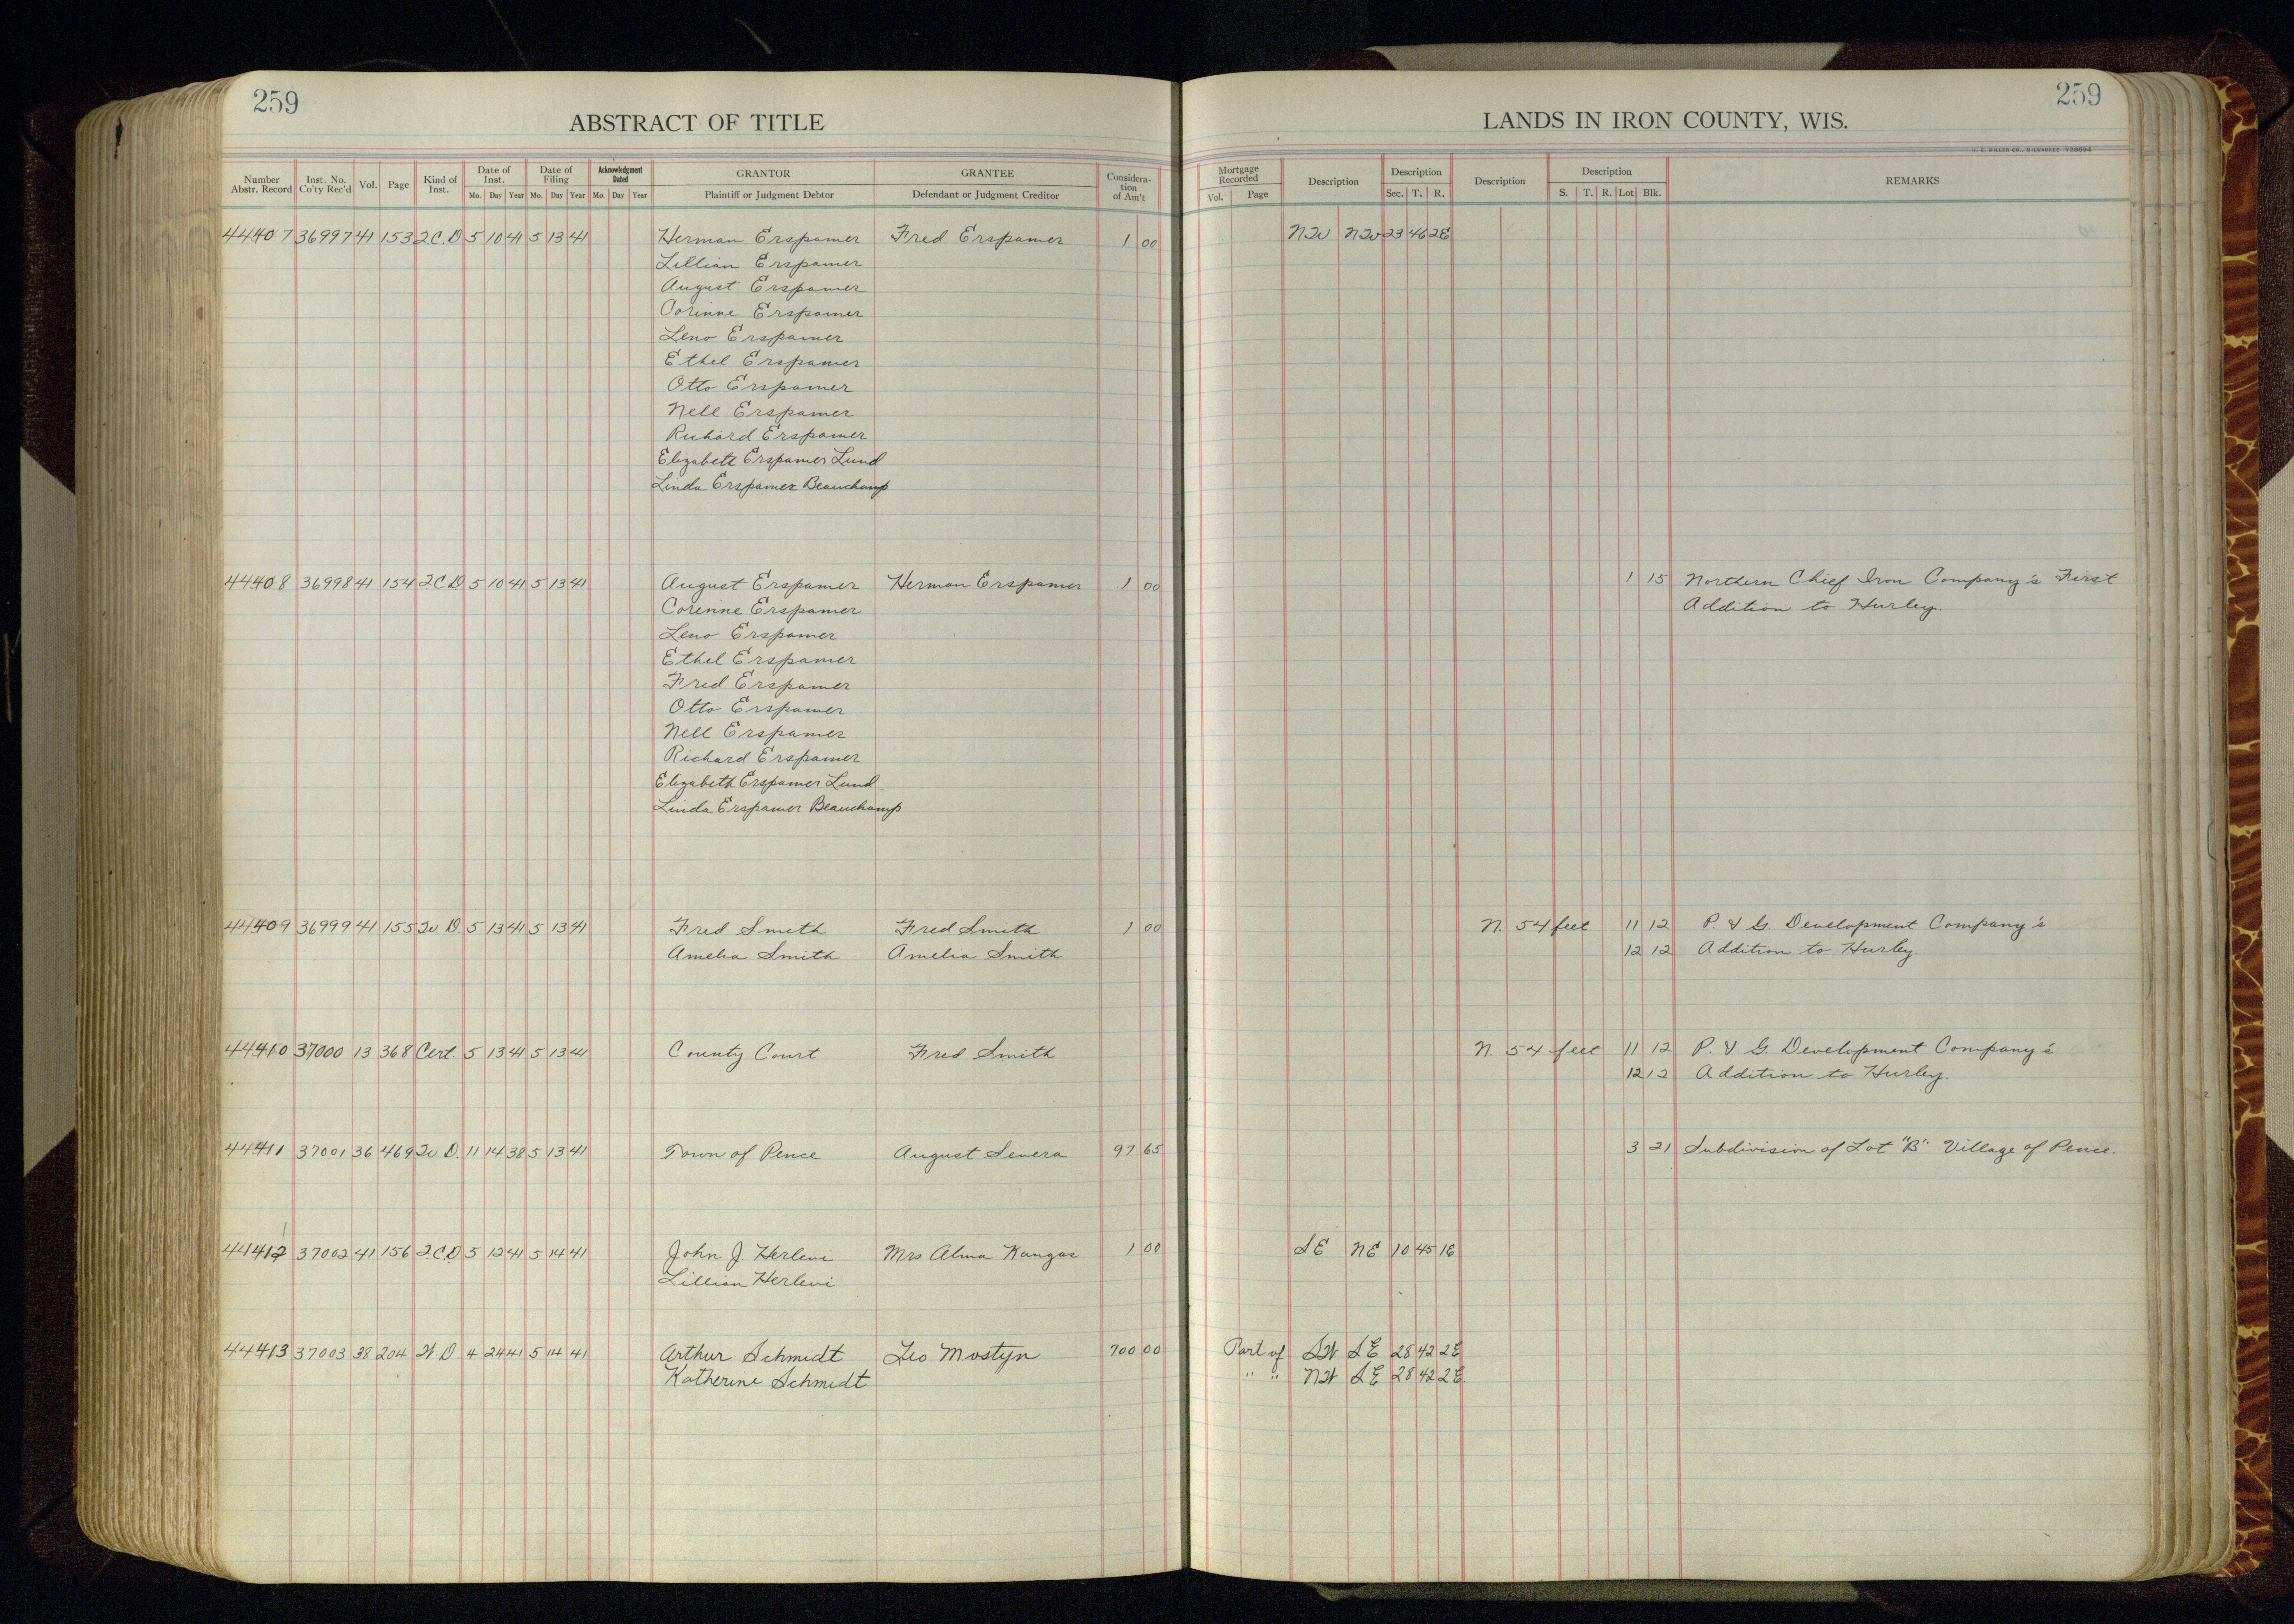 259
259
ABSTRACT OF TITLE
LANDS IN IRON COUNTY, WIS.
Number Abstr. Record Inst. No. Co'ty Rec'd Vol. Page Kind of Inst. Date of Inst. Mo. Day Year Date of Filing Mo. Day Year Acknowledgment Dated Mo. Day Year GRANTOR Plaintiff or Judgment Debtor GRANTEE Defendant or Judgment Creditor Consideration of Am't Mortgage Recorded Vol. Page Description Description Sec. T. R. Description Description S. T. R. Lot Blk. REMARKS
44407 36997 41 153 2.C.D 5 10 41 5 13 41 Herman Erspamer Fred Erspamer 1 00 NW NW 23 46 2E
Lillian Erspamer
August Erspamer
Corinne Erspamer
Leno Erspamer
Ethel Erspamer
Otto Erspamer
Nell Erspamer
Richard Erspamer
Elizabeth Erspamer Lund
Linda Erspamer Beauchamp
44408 36998 41 154 2.C.D 5 10 41 5 13 41 August Erspamer Herman Erspamer 1 00 1 15 Northern Chief Iron Company's First
Corinne Erspamer Addition to Hurley.
Leno Erspamer
Ethel Erspamer
Fred Erspamer
Otto Erspamer
Nell Erspamer
Richard Erspamer
Elizabeth Erspamer Lund
Linda Erspamer Beauchamp
44409 36999 41 155 W. D. 5 13 41 5 13 41 Fred Smith Fred Smith 1 00 N. 54 feet 11 12 P. & G. Development Company's
Amelia Smith Amelia Smith 12 12 Addition to Hurley.
44410 37000 13 368 Cert. 5 13 41 5 13 41 County Court Fred Smith N. 54 feet 11 12 P. & G. Development Company's
12 12 Addition to Hurley.
44411 37001 36 469 W. D. 11 14 38 5 13 41 Town of Pence August Severa 97 65 3 21 Subdivision of Lot "B" Village of Pence.
44412 37002 41 156 2.C.D 5 12 41 5 14 41 John J Herlevi Mrs Alma Kangas 1 00 SE NE 10 45 1E
Lillian Herlevi
44413 37003 38 204 W. D. 4 24 41 5 14 41 Arthur Schmidt Leo Mostyn 700 00 Part of SW SE 28 42 2E
Katherine Schmidt " " NW SE 28 42 2E.